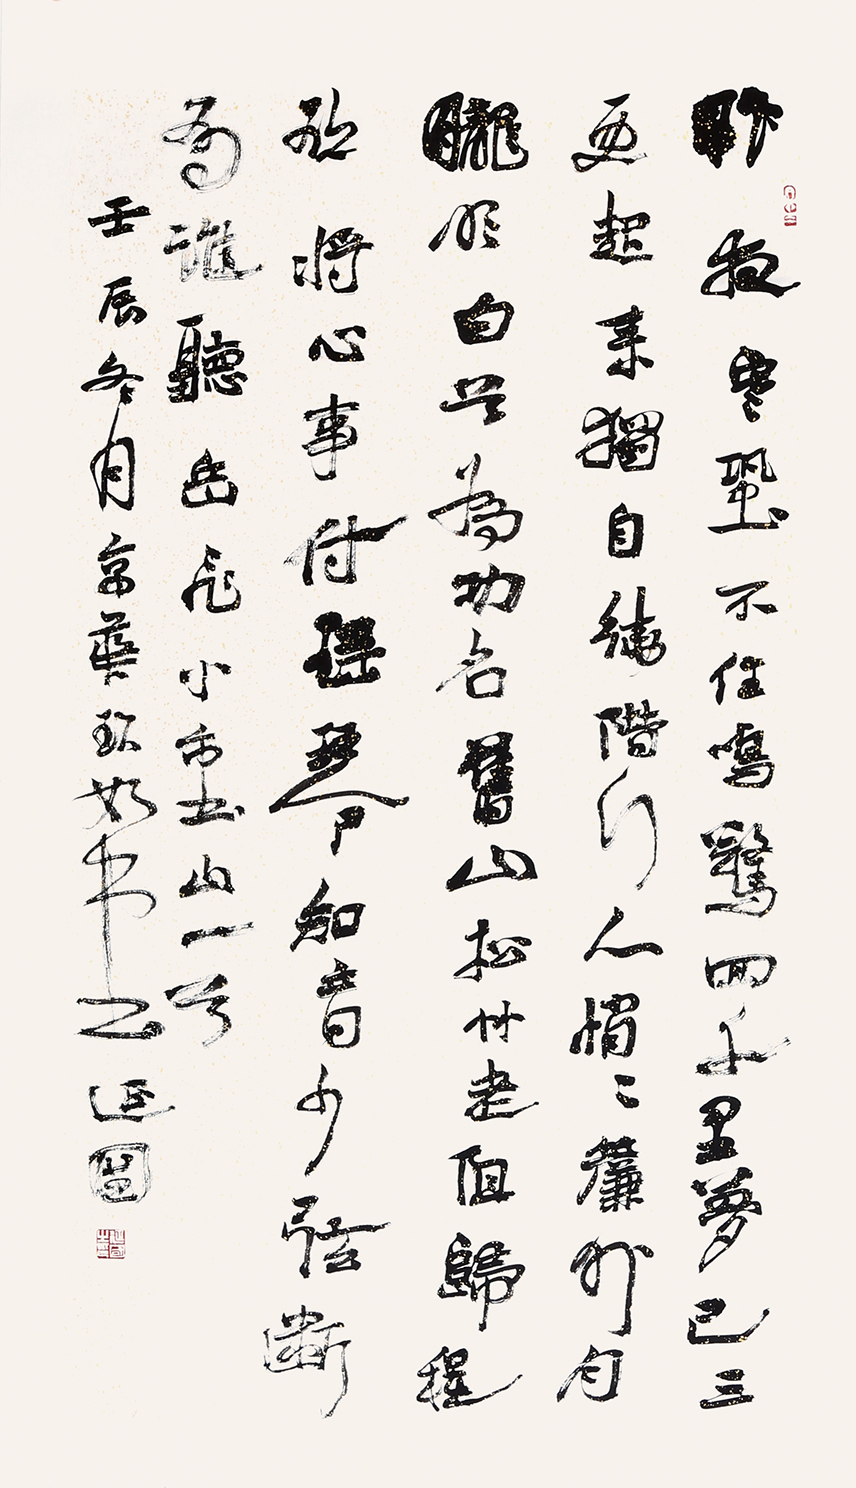 昨夜寒蛩不住鳴驚回千里夢已三
更起來獨自繞階行人悄〻簾外月
朧明白首為功名舊山松竹老阻歸程
欲將心事付瑤琴知音少弦斷
有誰聽岳飛小重山一首
壬辰冬月京華書之延圖